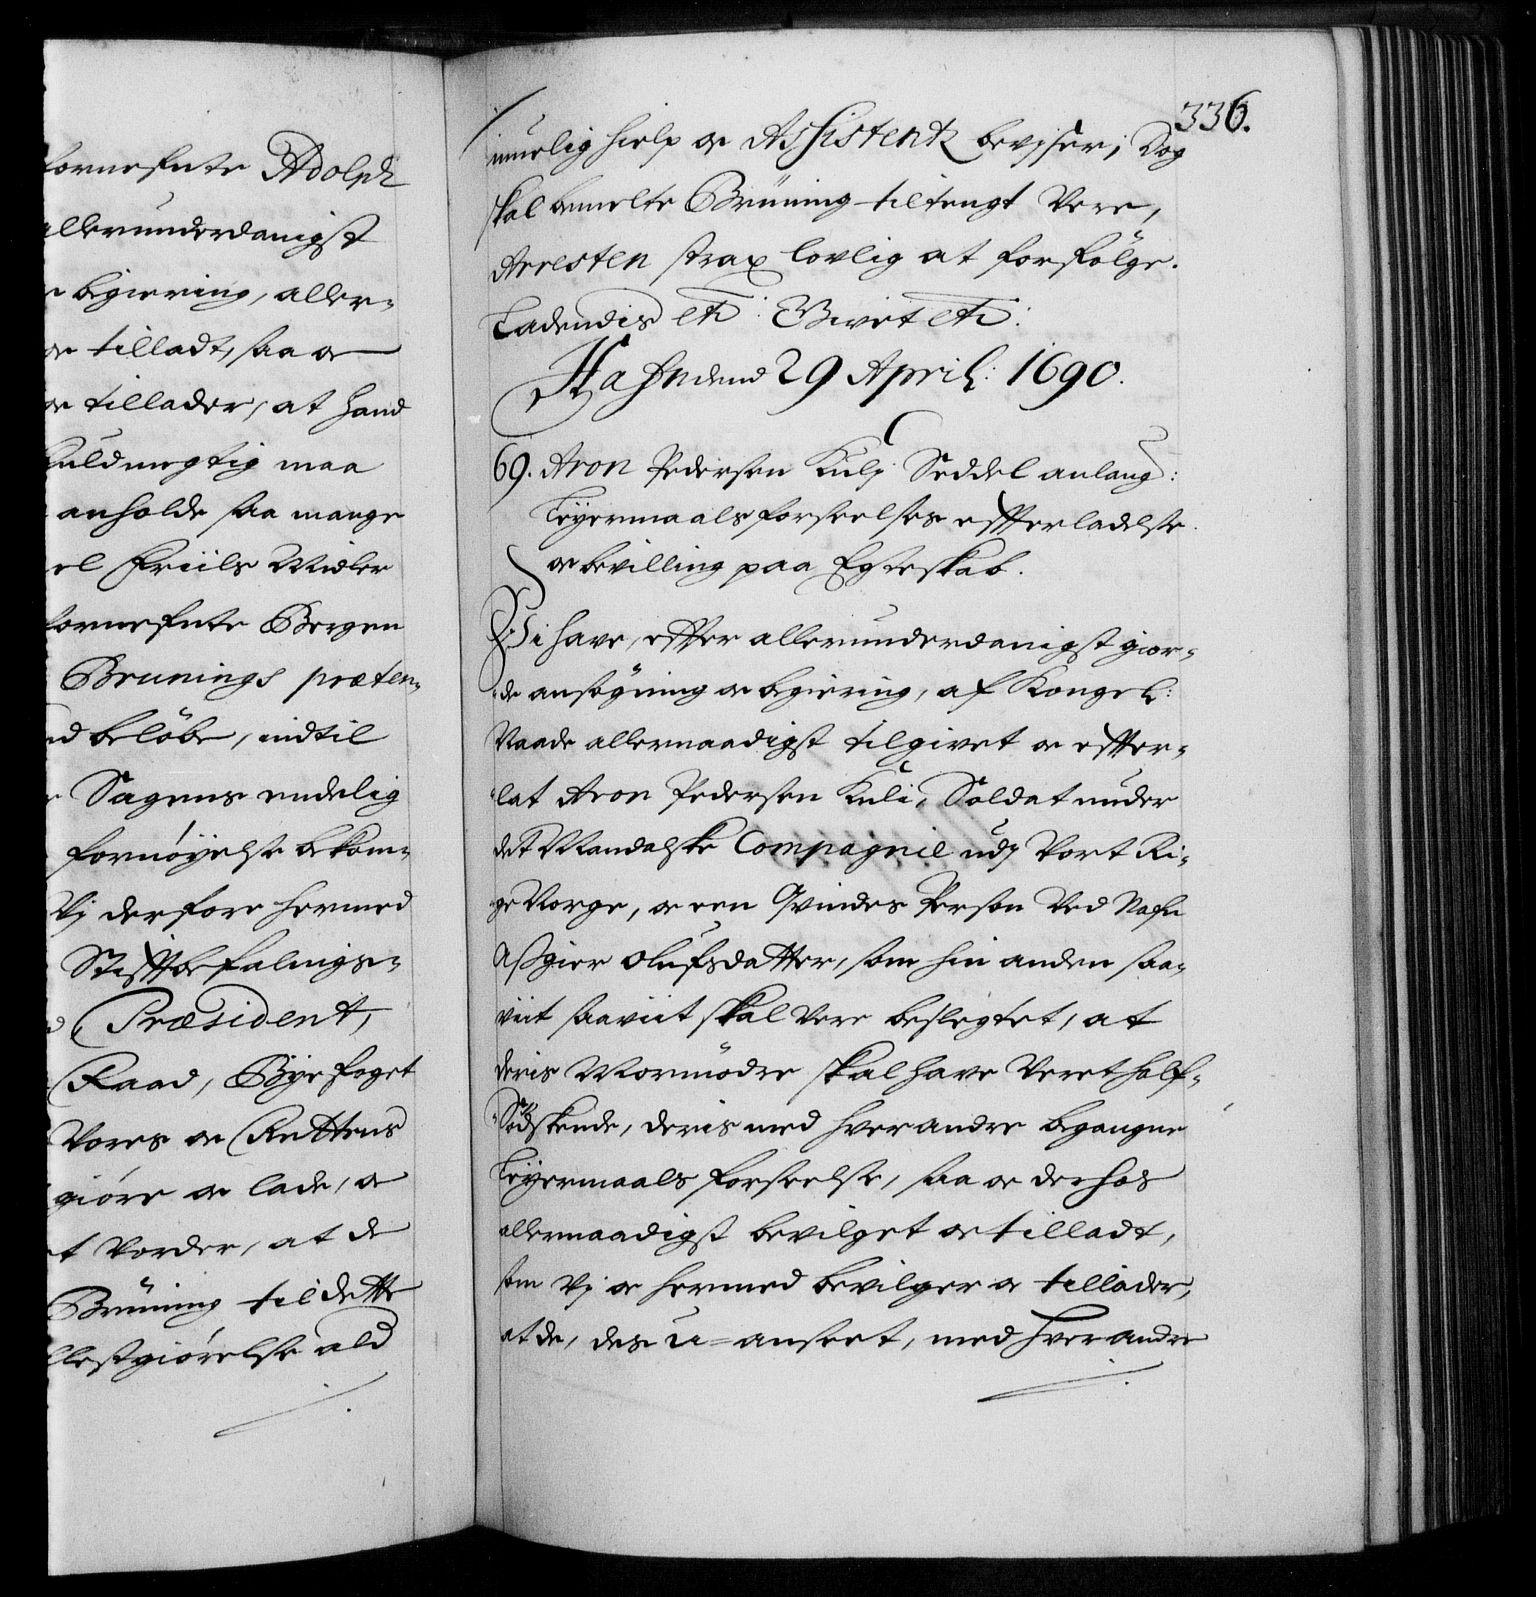 fornefnte Adolph
allerunderdanigst
begiering, aller-
tilladt, saa oc
oc tillader, at hand
fuldmegtig maa
anholde saa mange
el Friils Midler
fornefnte Bergen
Brunings præten-
beløbe, indtil
Sagens endelig
fornøyelse bekom-
Vj derfore hermed
Stifftbefalings-
Præsident,
Raad, Bÿefoget
Vores oc Rettens
giøre oc lade, oc
Vorder, at de
Brüning til dette
llestgiørelse ald
336.
muelig hielp oc Assistentz beviser; Dog
skal bemelte Brüning tiltengt Vere,
Arresten strax lovlig at forfölge.
Ladendis etc: Givet etc:
Hafn dend 29 April: 1690.
69. Aron Pedersen Kulj Seddel anlang:
Leÿermaals forseelses efterladelse
oc bevilling paa Egteskab.
Vi have, efter allerunderdanigst gior-
de ansøgning oc begiering, af Kongel:
Naade allernaadigst tilgivet oc efter-
lat Aron Pedersen Kuli, Soldat under
det Mandalske Compagnie udj Vort Ri-
ge Norge, oc een Qvindes Person Ved Nafn
Aßgier Olufsdatter, som hin anden saa-
viit saaviit skal Vere beslegtet, at
deris Mormödre skal have Veret half-
Södskende, deris med hverandre begangne
Leÿermaals forseelse, saa oc derhos
allernaadigst bevilget oc tilladt,
som Vj oc hermed bevilger oc tillader,
at de, des u-anseet, med hverandre